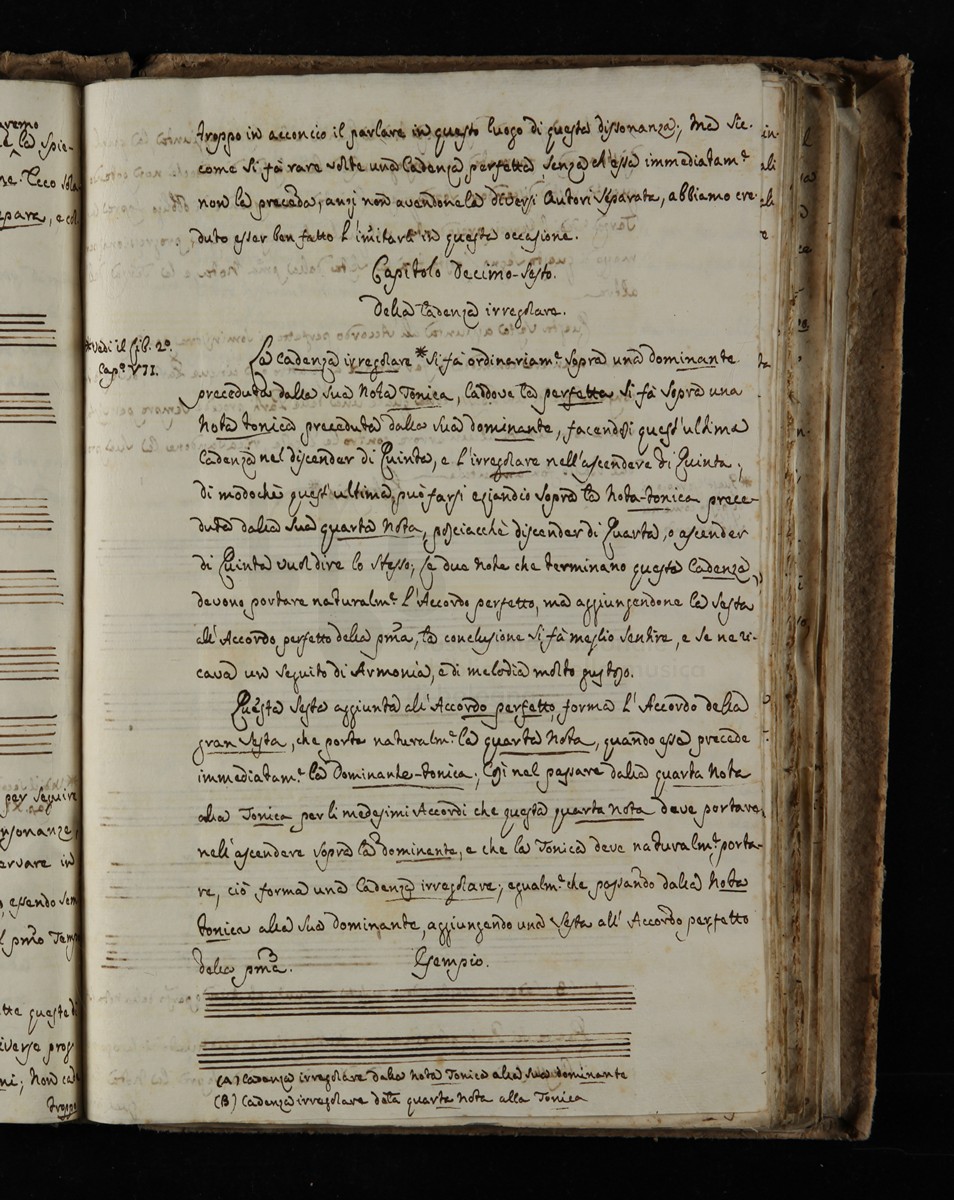 troppo in acconcio il parlare in questo luogo di questa dissonanza; Ma sic-
come si fà rare volte una Cadenza perfetta, senza ch'essa immediatam.te
non la preceda, anzi non avendonela diversi Autori separata, abbiamo cre-
duto esser ben fatto l'imitarli in questa occasione.
Capitolo Decimo-Sesto.
Della Cadenza irregolare.
*Vedi il Lib. 2º.
Cap.º VII.
La Cadenza irregolare * si fà ordinariam.te sopra una dominante
preceduta dalla sua Nota Tonica, laddove la perfetta si fà sopra una
Nota tonica preceduta dalla sua dominante, facendosi quest'ultima
Cadenza nel discender di Quinta, e l'irregolare nell'ascendere di Quinta;
di modochè quest'ultima può farsi eziandio sopra la Nota-tonica prece-
duta dalla sua quarta Nota, posciacchè discender di Quarta, o ascender
di Quinta vuol dire lo stesso; Le due Note che terminano questa Cadenza,
devono portare naturalm.te l'Accordo perfetto, ma aggiungendone la Sesta
all'Accordo perfetto della pma, la conclusione si fà meglio sentire, e se ne ri-
cava un seguito di Armonia, e di melodia molto gustoso.
Questa Sesta aggiunta all'Accordo perfetto, forma l'Accordo della
gran Sesta, che porta naturalm.te la quarta Nota, quando essa precede
immediatam.te la Dominante-tonica; Così nel passare dalla quarta Nota
alla Tonica per li medesimi Accordi che questa quarta nota deve portare,
nell'ascendere sopra la dominente, e che la Tonica deve naturalm.te porta-
re, ciò forma una Cadenza irregolare; egualm.te che passando dalla Nota
tonica alla sua Dominante, aggiungendo una Sesta all'Accordo perfetto
della pma.
Esempio.
(A) Cadenza irregolare dalla Nota Tonica alla sua dominante
(B) Cadenza irregolare dalla quarta Nota alla Tonica